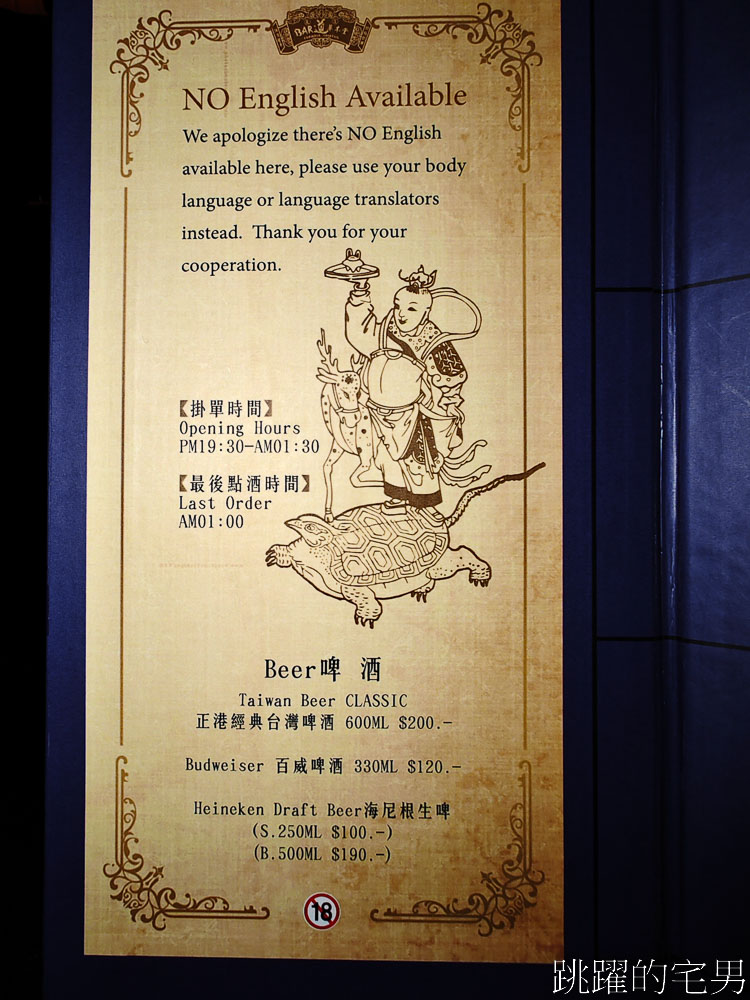 BAR
NO English Available
We apologize there's NO English
available here, please use your body
language or language translators
instead.  Thank you for your
cooperation.
【掛單時間】
Opening Hours
PM19:30-AM01:30
【最後點酒時間】
Last Order
AM01:00
Beer啤 酒
Taiwan Beer CLASSIC
正港經典台灣啤酒 600ML $200.-
Budweiser 百威啤酒 330ML $120.-
Heineken Draft Beer海尼根生啤
(S.250ML $100.-)
(B.500ML $190.-)
18
跳躍的宅男